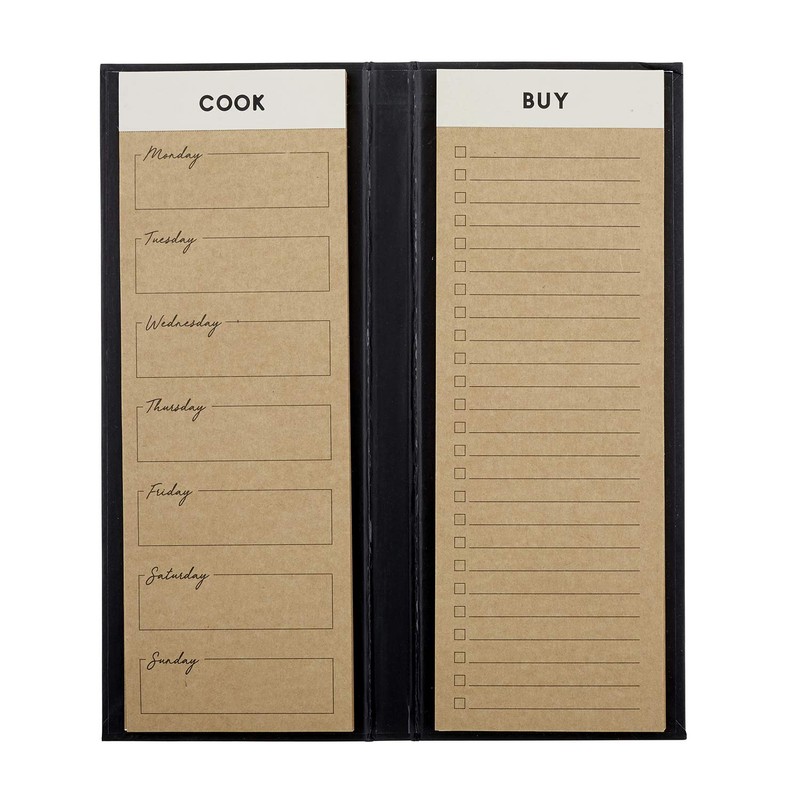 COOK
Monday
Tuesday
Wednesday
Thursday
Friday
Saturday
Sunday
BUY